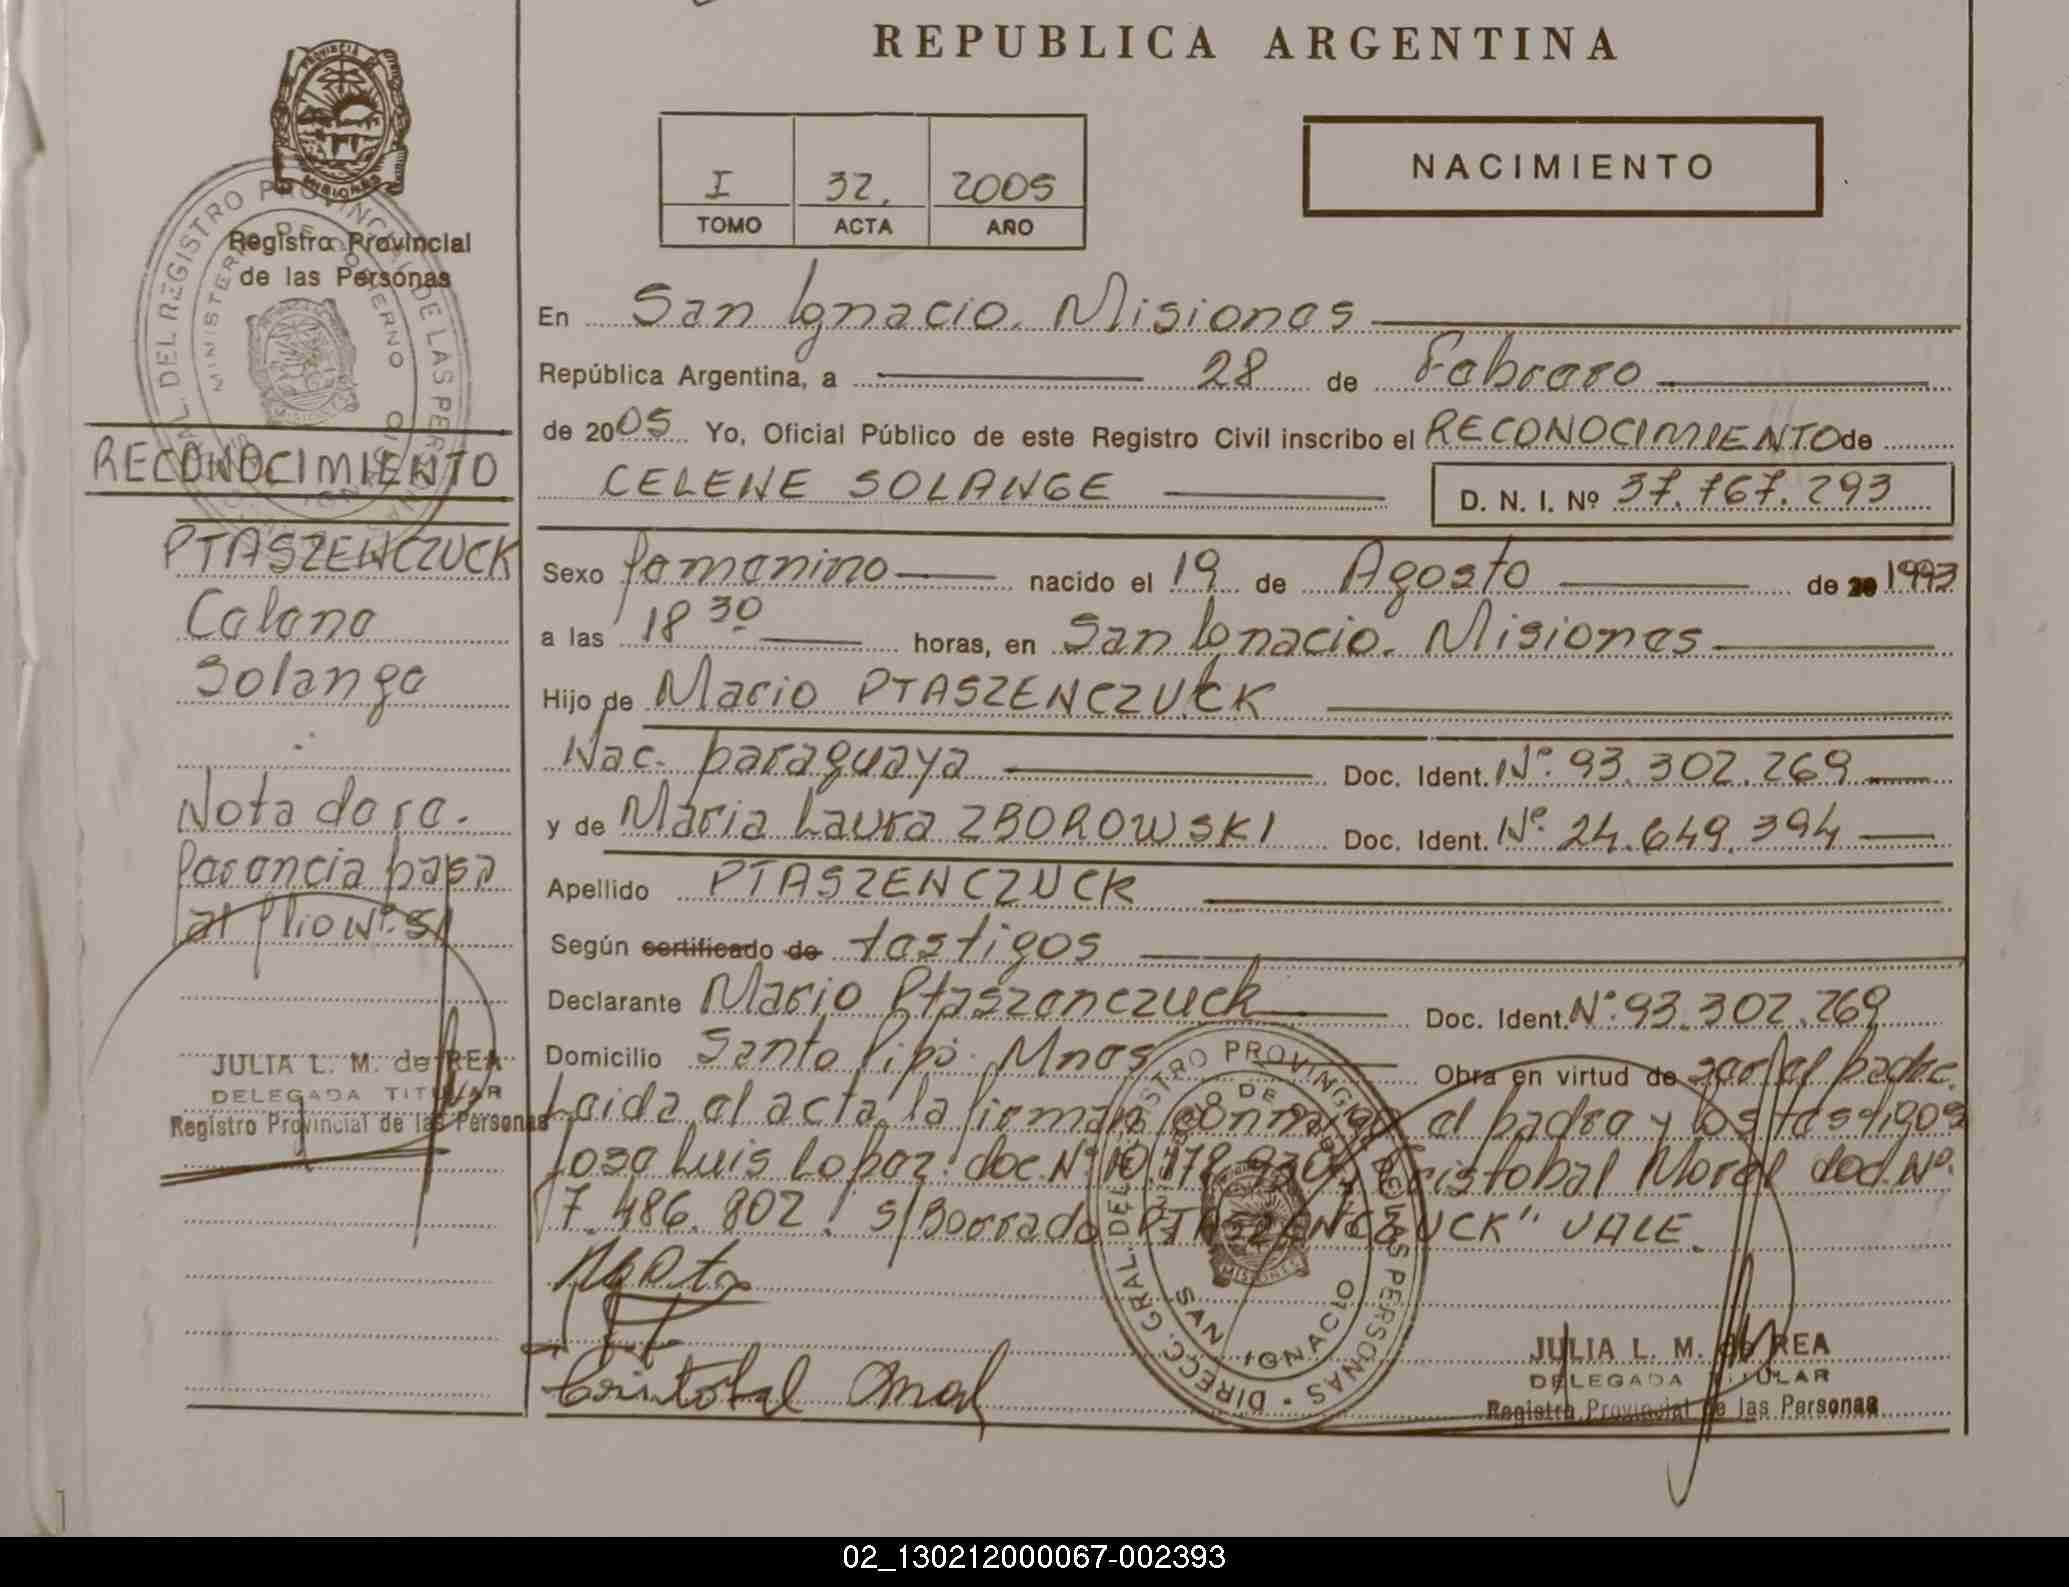 REPUBLICA ARGENTINA
PROVINCIA DE MISIONES
Registro Provincial
de las Personas
I 32. 2005
TOMO ACTA AÑO
NACIMIENTO
En San Ignacio. Misiones
República Argentina, a 28 de Febrero
de 2005 Yo, Oficial Público de este Registro Civil inscribo el RECONOCIMIENTO de
CELENE SOLANGE D. N. I. Nº 37.767.293
Sexo femenino nacido el 19 de Agosto de 20 1993
a las 18 30 horas, en San Ignacio. Misiones
Hijo de Mario PTASZENCZUCK
Nac. paraguaya Doc. Ident. Nº. 93.302.269
y de Maria Laura ZBOROWSKI Doc. Ident. Nº. 24.649.394
Apellido PTASZENCZUCK
Según certificado de testigos
Declarante Mario Ptaszenczuck Doc. Ident. Nº. 93.302.269
Domicilio Santo Pipó. Mnes Obra en virtud de ser el padre.
Leida el acta, la firman conmigo el padre y los testigos
Jose Luis Lopez. doc. Nº 10. Cristobal Morel doc. Nº.
7.486.802. s/Borrado PTASZENCZUCK" VALE.
Cristobal
RECONOCIMIENTO
PTASZENCZUCK
Celene
Solange
Nota de re.
ferencia pasa
al folio Nº. 51
JULIA L. M. de REA
DELEGADA TITULAR
Registro Provincial de las Personas
JULIA L. M. de REA
DELEGADA TITULAR
Registro Provincial de las Personas
DIRECC. GRAL. DEL REGISTRO PROVINCIAL DE LAS PERSONAS
MINISTERIO DE GOBIERNO
SAN IGNACIO
MISIONES
02_130212000067-002393